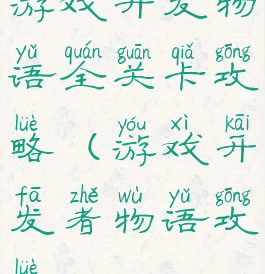 游戏开发物
yǔ quán guān qiǎ gōng
语全关卡攻
lüè yóu xì kāi
略（游戏开
fā zhě wù yǔ gōng
发者物语攻
lüè